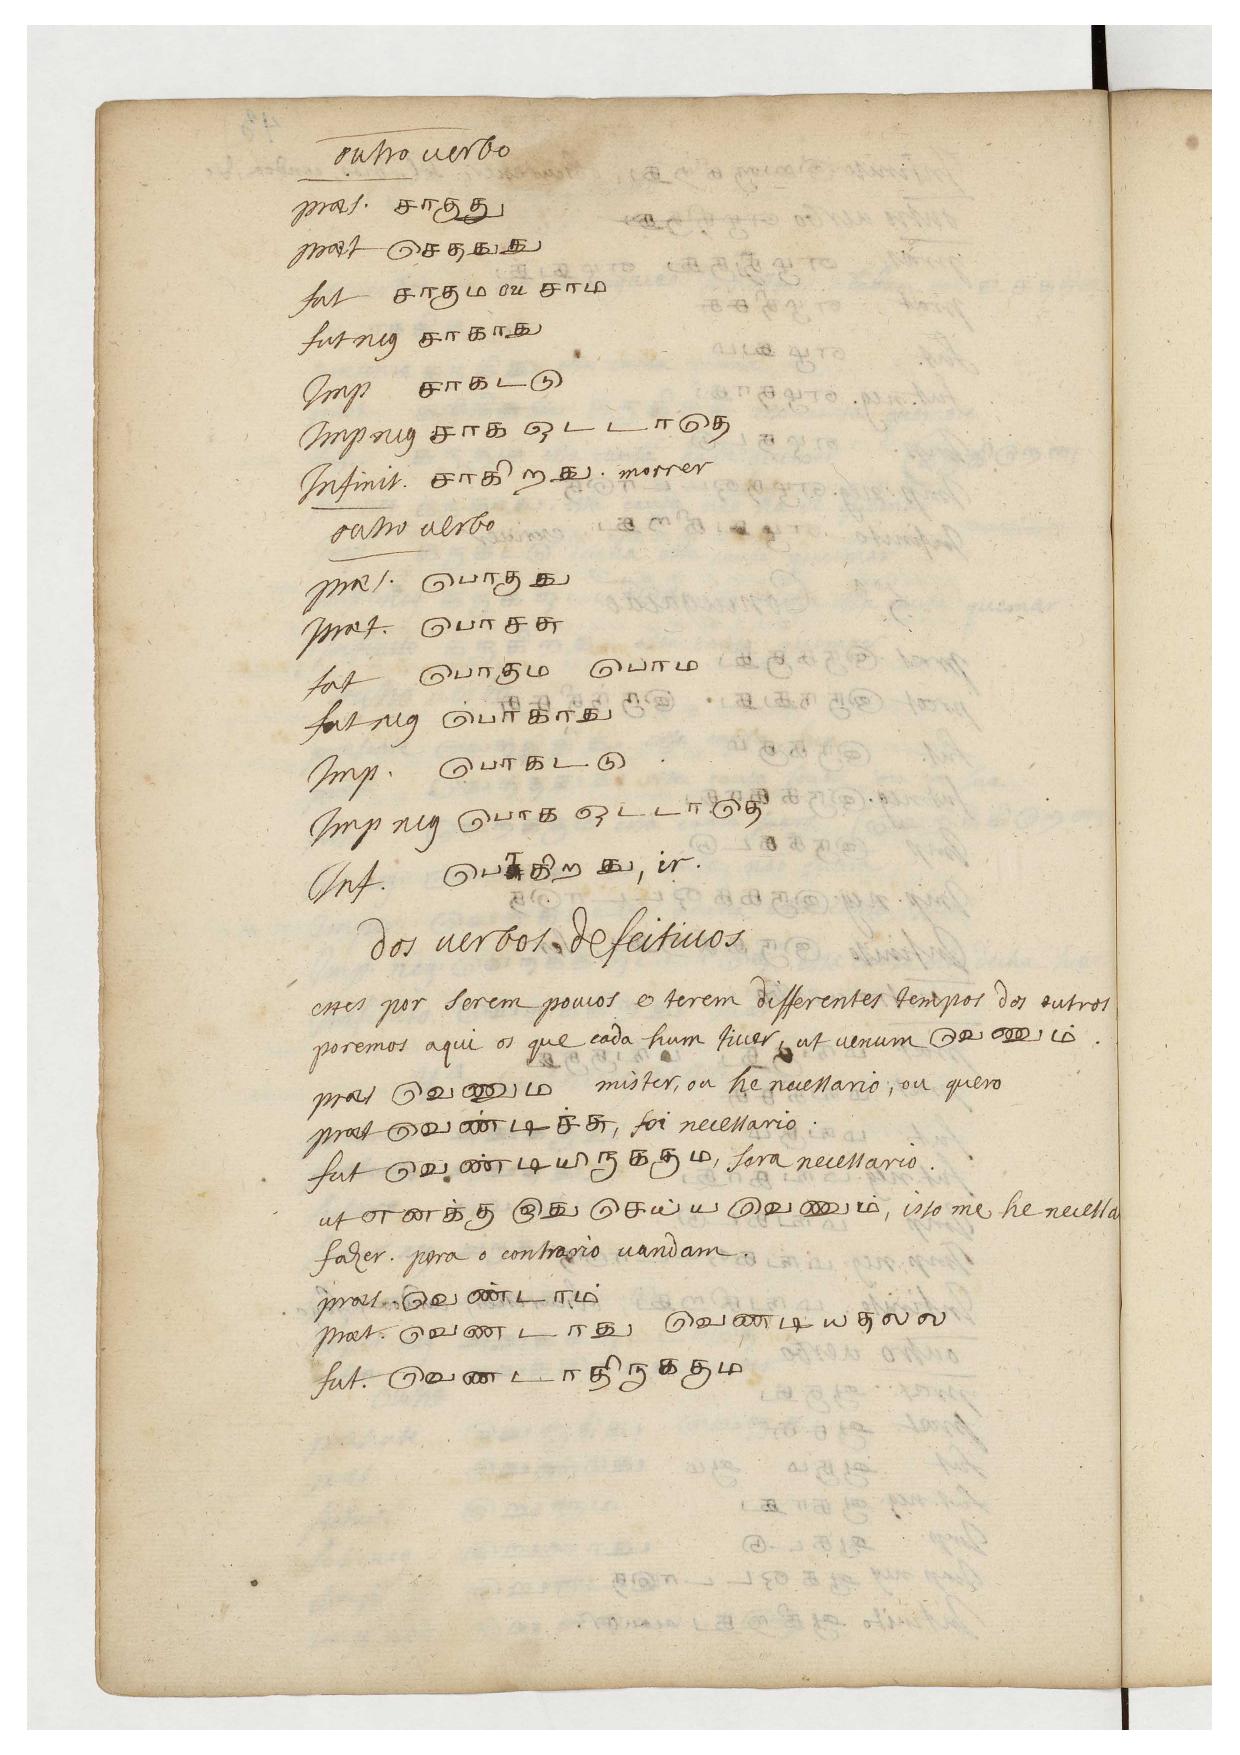 outro verbo
præs. சாகுது
præt செததுது
fut சாகும ou சாம
fut neg சாகாது
Imp சாகடடு
Imp neg சாக ஒடடாதெ
Infinit. சாகிறது. morrer
outro verbo
præs. பொகுது
præt. பொசசு
fut பொகும பொம
fut neg பொகாது
Imp. பொகடடு
Imp neg பொக ஒடடாதெ
Inf. பொகிறது, ir.
dos verbos defeitivos
estes por serem poucos e terem differentes tempos dos outros
poremos aqui os que cada hum tiver, ut venum வெணும்.
præs வெணும mister, ou he necessario, ou quero
præt வெண்டிச்சு, foi necessario.
fut வெண்டியிருககும, sera necessario.
ut எனக்கு இது செய்ய வெணும், isto me he necessa
fazer. pera o contrario vandam.
præs. வெண்டாம்
præt. வெணடாது வெணடியதலல
fut. வெணடாதிருககும